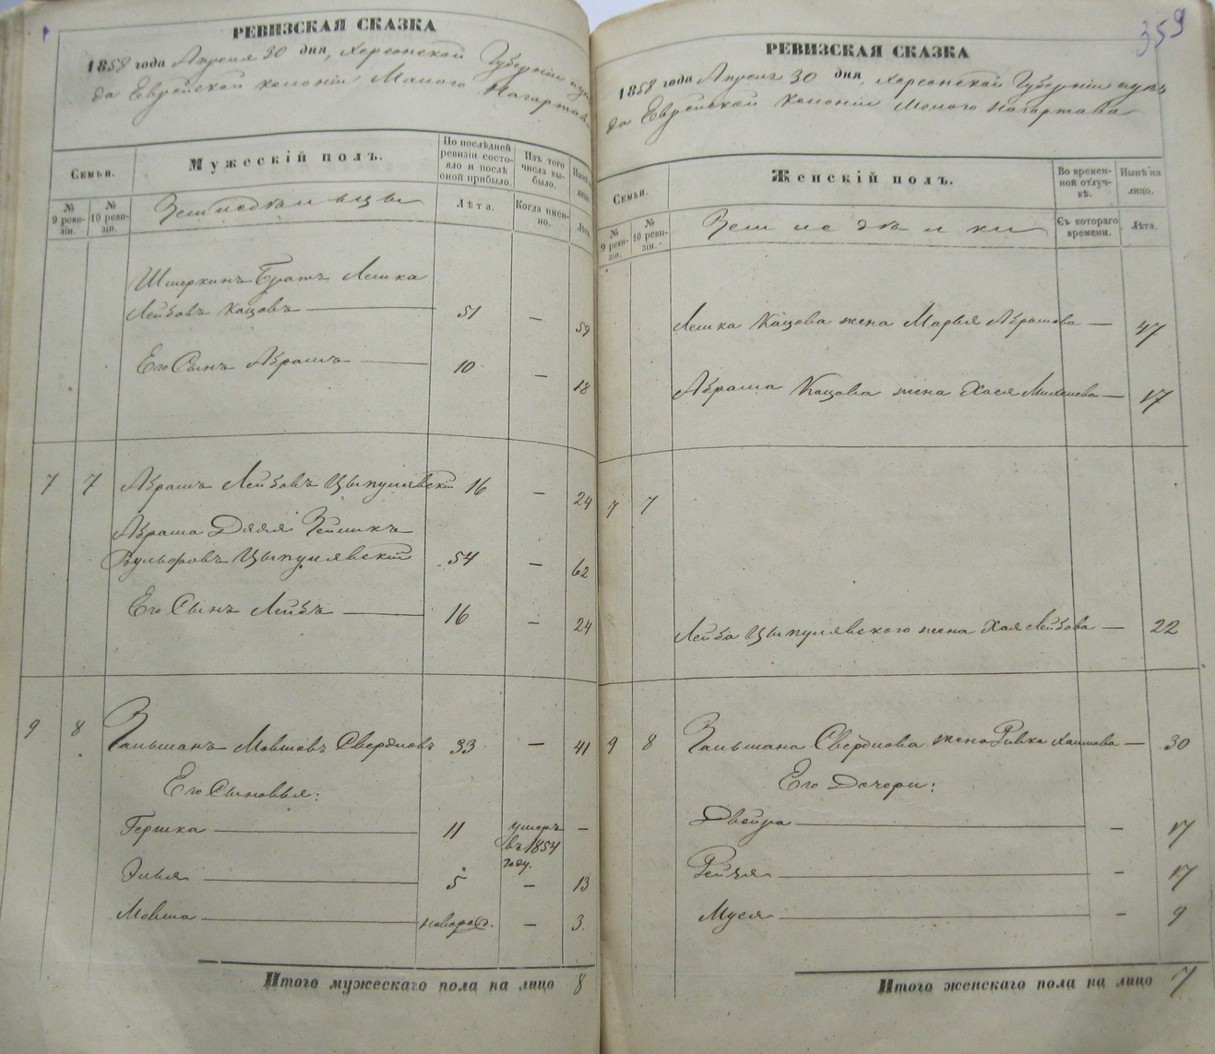 РЕВИЗСКАЯ СКАЗКА
1858 года Апреля 30 дня, Херсонской Губерніи
Еврейской колоніи Малого Нагартава
Семьи.
Мужескій полъ.
По послѣдней ревизіи состояло и послѣ оной прибыло.
Изъ того числа выбыло.
№ 9 ревизіи.
№ 10 ревизіи.
Лѣта.
Когда именно.
Братъ Лешка
Лейбовъ Кацовъ — 51 — 59
Его Сынъ Абрамъ — 10 — 18
7 7 Абрамъ Лейбовъ Цыпулявскій 16 — 24
Абрама Дядя
Вульфовъ Цыпулявскій 54 — 62
Его Сынъ Лейба — 16 — 24
9 8 Зальманъ Мовшовъ Свердловъ 33 — 41
Его Сыновья:
Гершка — 11 умеръ въ 1854 году. —
Элья — 5 — 13
Мовша — новорож. — 3.
Итого мужескаго пола на лицо 8
359
РЕВИЗСКАЯ СКАЗКА
1858 года Апреля 30 дня, Херсонской Губерніи
Еврейской колоніи Малого Нагартава
Семьи.
Женскій полъ.
Во временной отлучкѣ.
Нынѣ на лицо.
№ 9 ревизіи.
№ 10 ревизіи.
Съ котораго времени.
Лѣта.
Лешка Кацова жена Марья Абрамова — 47
Абрама Кацова жена Хася — 17
7 7
Лейба Цыпулявского жена Хая Лейбова — 22
9 8 Зальмана Свердлова жена Ривка Хаимова — 30
Его Дочери:
Двейра — - 17
Рейзя — - 17
Муся — - 9
Итого женскаго пола на лицо 7